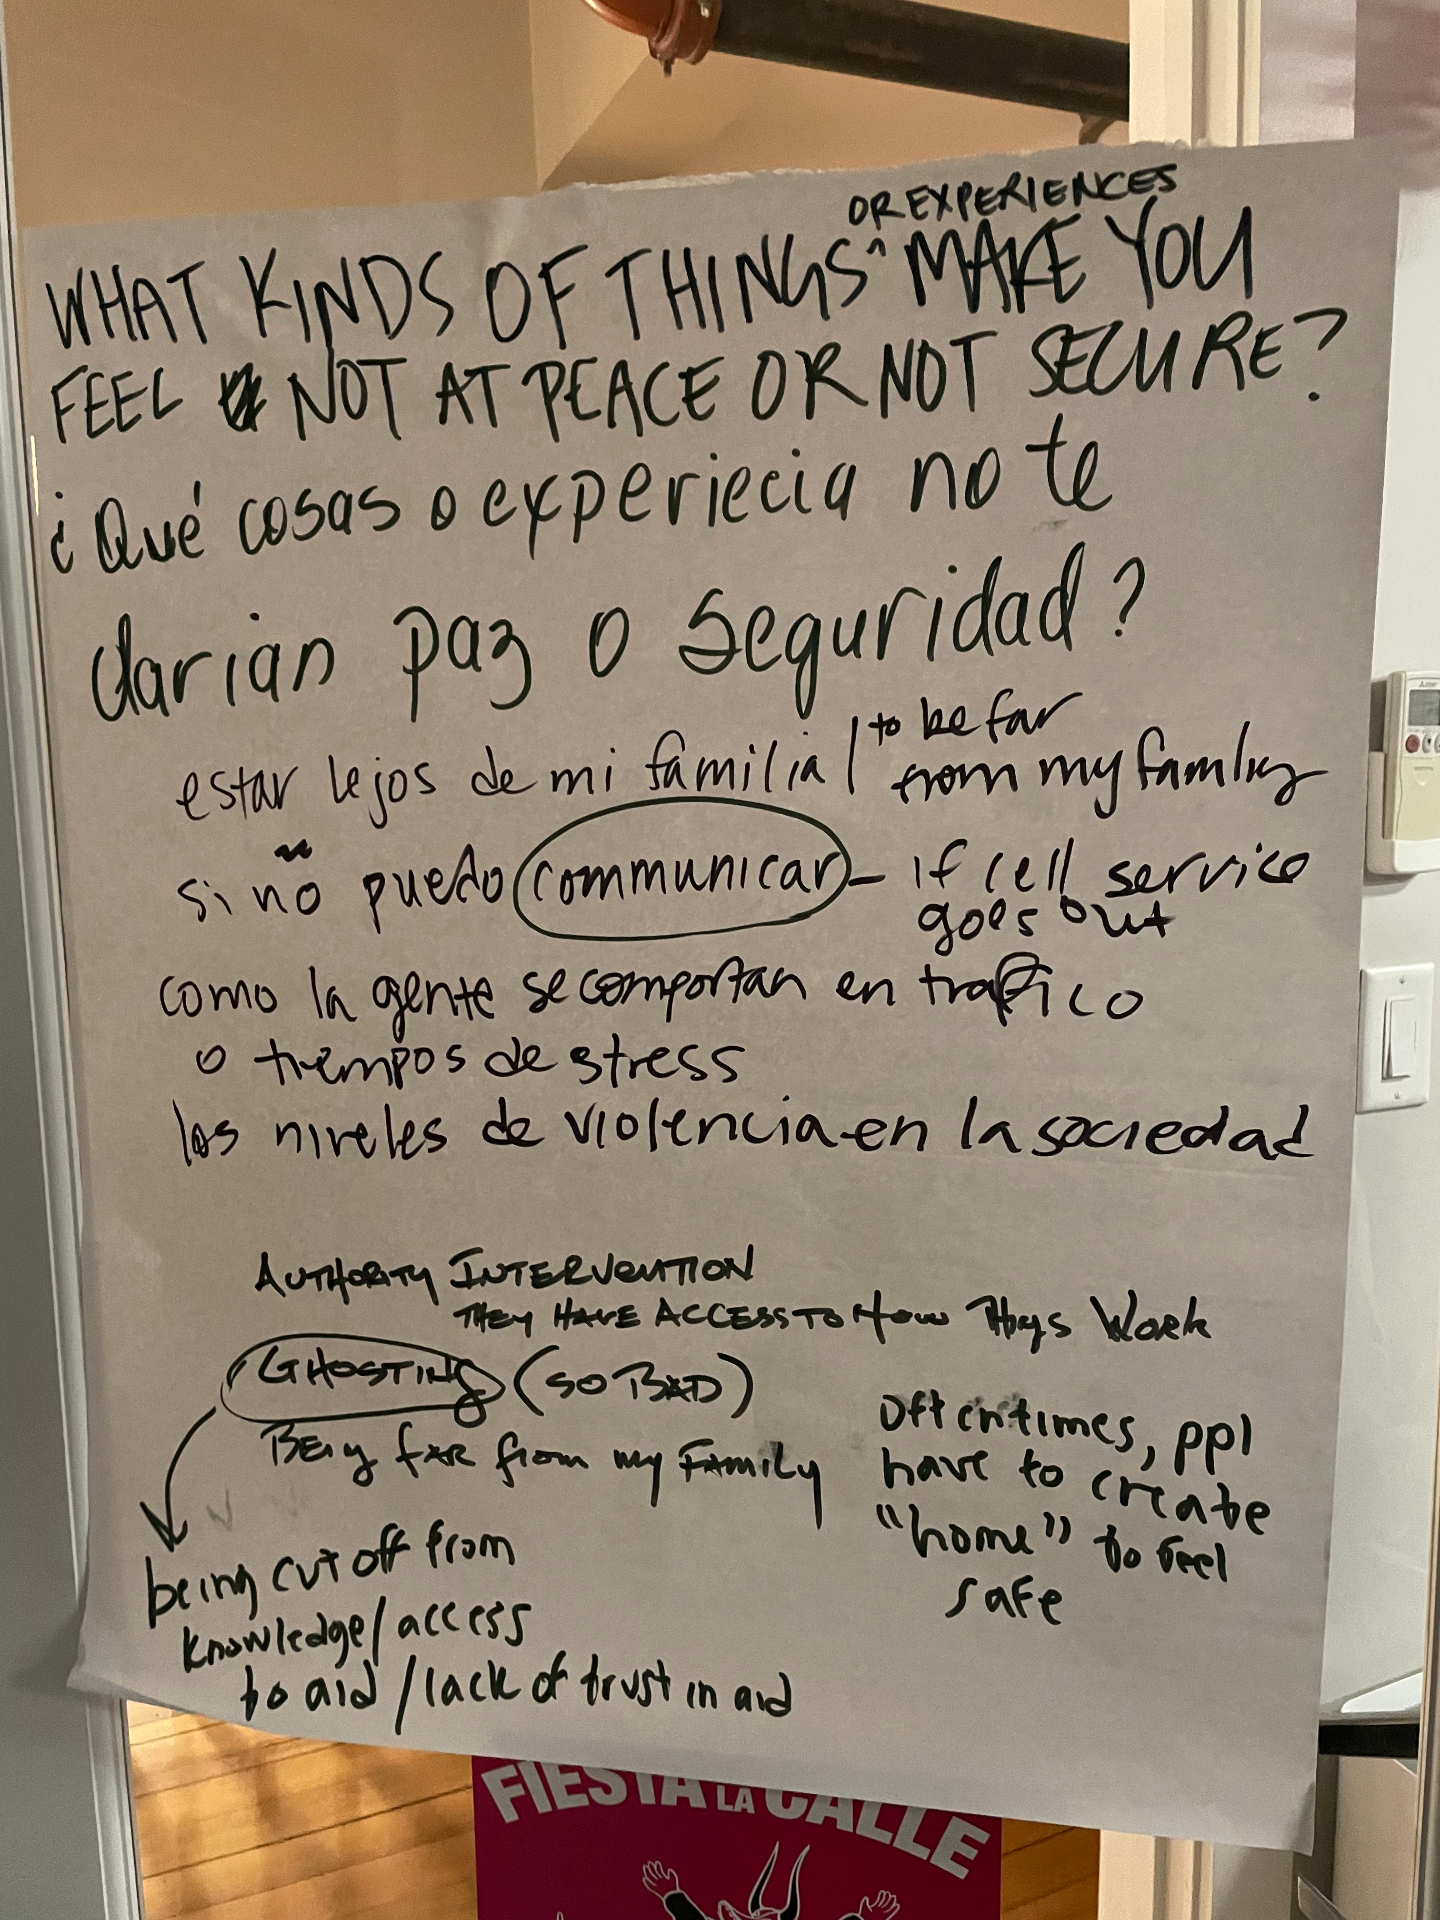 OR EXPERIENCES
WHAT KINDS OF THINGS ^ MAKE YOU
FEEL NOT AT PEACE OR NOT SECURE?
¿Qué cosas o experiecia no te
darian paz o seguridad?
estar lejos de mi familia / to be far
from my family
si no puedo communicar - if cell service
goes out
como la gente se comportan en trafico
o tiempos de stress
los niveles de violencia en la sociedad
AUTHORITY INTERVENTION
THEY HAVE ACCESS TO How Thgs Work
GHOSTING (SO BAD)
Beig far from my Family
Oftentimes, ppl
have to create
"home" to feel
safe
being cut off from
knowledge/access
to aid / lack of trust in aid
FIESTA LA CALLE